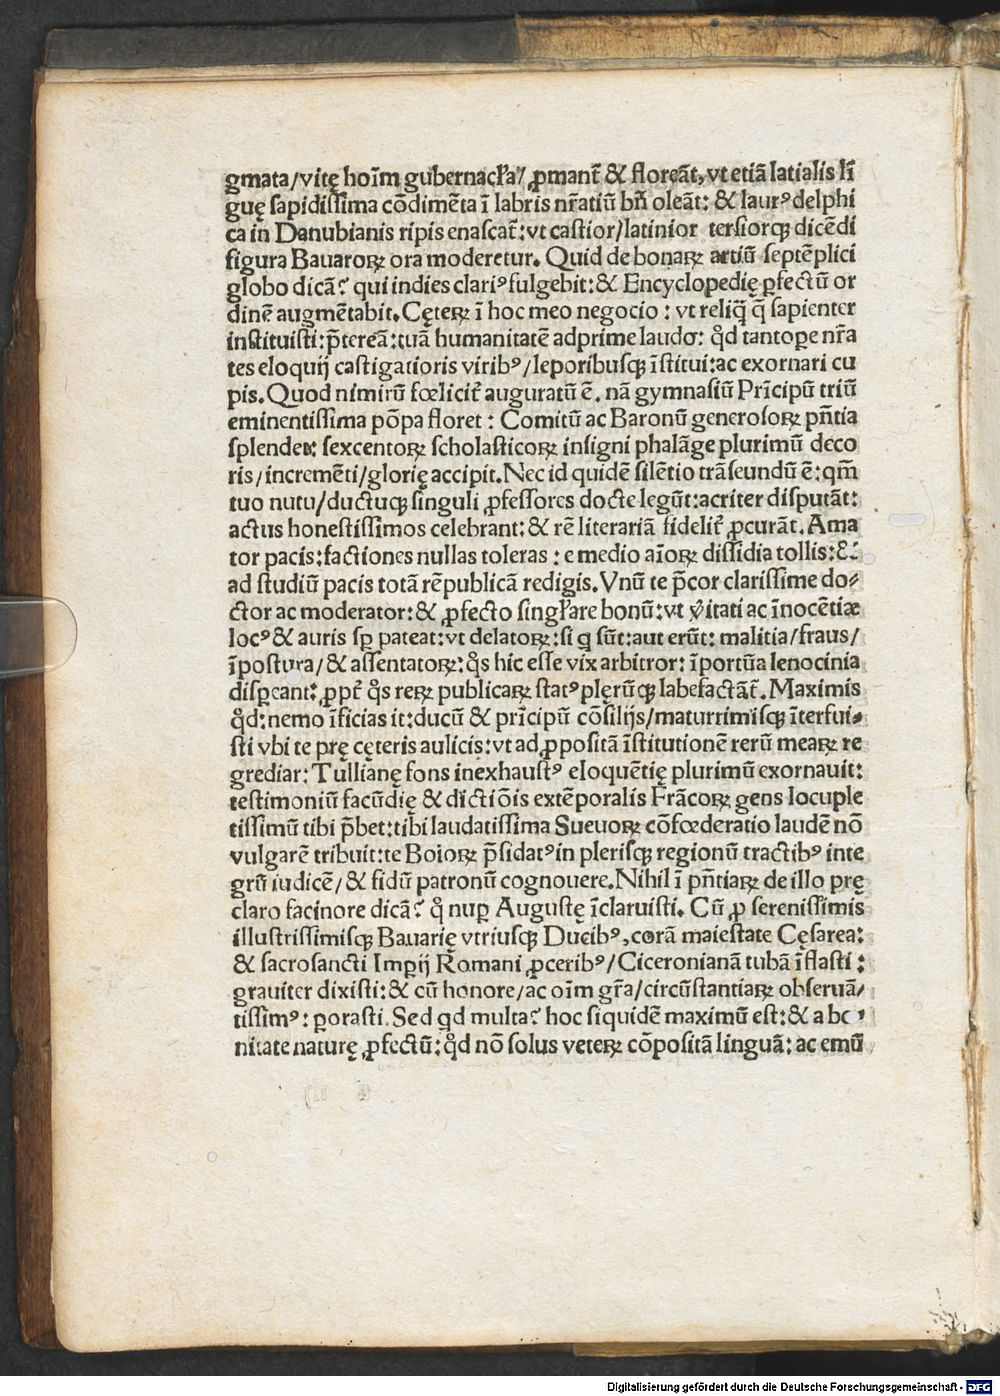 gmata/vitę hoīm gubernacl'a? ꝓmant̄ & floreāt, vt etiā latialis lī
guę sapidissima cōdimēta ī labris nr̄atiū bn̄ oleāt: & laurꝰ delphi
ca in Danubianis ripis enascat̄: vt castior/latinior tersiorqꝫ dicēdi
figura Bauaroꝝ ora moderetur. Quid de bonaꝝ artiū septēplici
globo dicā? qui indies clariꝰ fulgebit: & Encyclopedię ꝑfectū or
dinē augmētabit. Cęteꝝ ī hoc meo negocio : vt reliq̄ q̄ sapienter
instituisti: p̄tereā: tuā humanitatē adprime laudo: qd̛ tantoꝑe nr̄a
tes eloquij castigatioris viribꝰ/leporibusqꝫ īstitui: ac exornari cu
pis. Quod nimirū fœlicit̛ auguratū ē. nā gymnasiū Prīcipū triū
eminentissima pōpa floret : Comitū ac Baronū generosoꝝ pn̄tia
splendet: sexcentoꝝ scholasticoꝝ insigni phalāge plurimū deco
ris/incremēti/glorię accipit. Nec id quidē silētio trāseundū ē: qm̄
tuo nutu/ductuqꝫ singuli ꝓfessores docte legūt: acriter disputāt:
actus honestissimos celebrant: & rē literariā fidelit̛ ꝓcurāt. Ama
tor pacis: factiones nullas toleras : e medio aīoꝝ dissidia tollis: &
ad studiū pacis totā rēpublicā redigis. Vnū te p̄cor clarissime do⸗
ctor ac moderator: & ꝓfecto singl'are bonū: vt v̛itati ac īnocētiæ
locꝰ & auris sꝑ pateat: vt delatoꝝ: si q sūt: aut erūt: malitia/fraus/
īpostura/& assentatoꝝ: qͦs hic esse vix arbitror: īportūa lenocinia
disꝑeant: ꝓpt̛ qͦs reꝝ publicaꝝ statꝰ plęrūqꝫ labefactāt̄. Maximis
qd̛: nemo īficias it: ducū & prīcipū cōsilijs/maturrimisqꝫ īterfui⸗
sti vbi te prę cęteris aulicis: vt ad ꝓpositā īstitutionē rerū meaꝝ re
grediar: Tullianę fons inexhaustꝰ eloquētię plurimū exornauit:
testimoniū facūdię & dictiōis extēporalis Frācoꝝ gens locuple
tissimū tibi p̄bet: tibi laudatissima Sueuoꝝ cōfœderatio laudē nō
vulgarē tribuit: te Boioꝝ p̄sidatꝰ in plerisqꝫ regionū tractibꝰ inte
grū iudicē/& fidū patronū cognouere. Nihil ī pn̄tiaꝝ de illo prę
claro facinore dicā? qͦ nuꝑ Augustę īclaruisti. Cū ꝓ serenissimis
illustrissimisqꝫ Bauarię vtriusqꝫ Ducibꝰ, corā maiestate Cęsarea:
& sacrosancti Imꝑij Romani ꝓceribꝰ/Ciceronianā tubā īflasti :
grauiter dixisti: & cū honore/ac oīm gr̄a/circūstantiaꝝ obseruā⸗
tissimꝰ: ꝑorasti. Sed qd multa? hoc siquidē maximū est: & a bo
nitate naturę ꝓfectū: qd̛ nō solus veteꝝ cōpositā linguā: ac emū
Digitalisierung gefördert durch die Deutsche Forschungsgemeinschaft - DFG